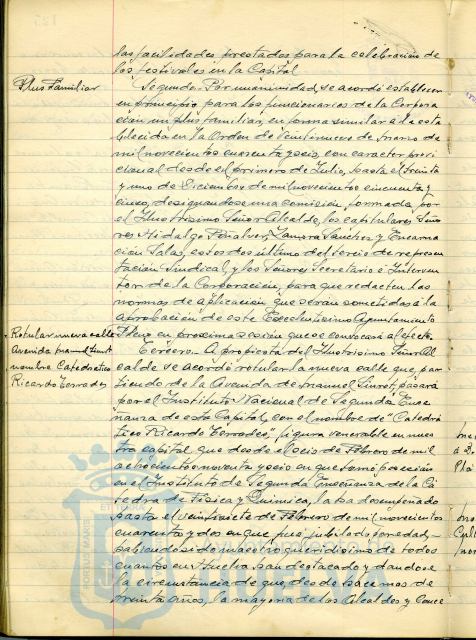 las facilidades prestadas para la celebracion de
los festivales en la Capital
Plus Familiar
Segundo. Por unanimidad, se acordó establecer
en principio para los funcionarios de la Corpora
ción un plus familiar, en forma similar al esta
blecido en la Orden de veintinueve de marzo de
mil novecientos cuarenta y seis, con caracter provi
sional desde el primero de Julio, hasta el treinta
y uno de Diciembre de mil novecientos cincuenta y
cinco, designandose una comision, formada por
el Ilustrisimo Señor Alcalde, los capitulares Seño
res Hidalgo Peñalver, Zamora Sanchez y Encarna
ción Salas, estos dos últimos del tercio de represen
tación Sindical, y los Señores Secretario e Interven
tor de la Corporación, para que redacten las
normas de aplicación que seran sometidas a la
aprobacion de este Excelentisimo Ayuntamiento
Pleno en proxima sesión que se convocará al efecto.
Rotular nueva calle
Avenida Manuel Siurot
nombre Catedratico
Ricardo Terrades
Tercero. A propuesta del Ilustrisimo Señor Al
calde se acordó rotular la nueva calle que, par
tiendo de la Avenida de Manuel Siurot, pasará
por el Instituto Nacional de Segunda Ense
ñanza de esta Capital, con el nombre de "Catedrá
tico Ricardo Terrades", figura venerable en nues
tra capital que desde el seis de Febrero de mil
ochocientos noventa y seis en que tomó posesión
en el Instituto de Segunda Enseñanza de la Cá
tedra de Física y Química, la ha desempeñado
hasta el veintisiete de Febrero de mil novecientos
cuarenta y dos en que fué jubilado por edad,
habiendo sido maestro queridisimo de todos
cuantos en Huelva han destacado y dandose
la circunstancia de que, desde hace mas de
treinta años, la mayoria de los Alcaldes y Conce